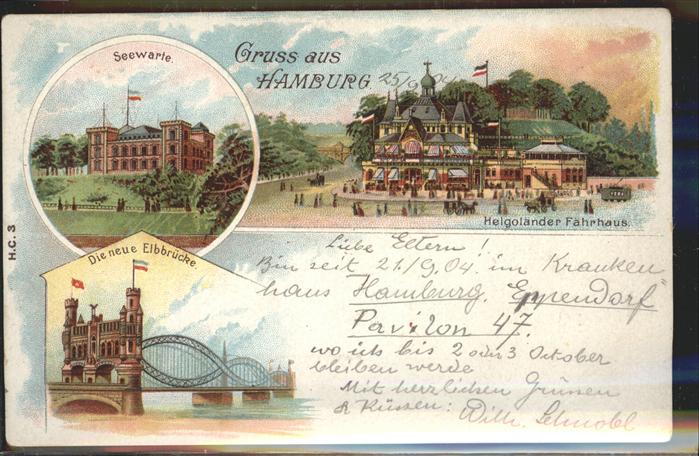 Seewarte.
Gruss aus
HAMBURG. 25/9 04
Helgoländer Fährhaus.
H.C. 3
Die neue Elbbrücke.
Liebe Eltern!
Bin seit 21/9.04. im Kranken
haus Hamburg. Eppendorf
Pavilon 47.
wo ich bis 2 oder 3 October
bleiben werde
Mit herzlichen Grüssen
& Küssen: Wilh.